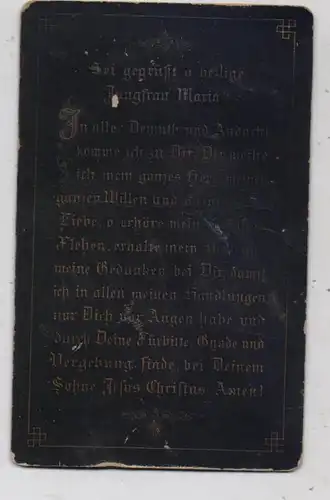 Sei gegrüßt o heilige
Jungfrau Maria
In aller Demuth und Andacht
komme ich zu Dir, Dir weihe
ich mein ganzes
ganzen Willen und
Liebe, o erhöre mein
Flehen, erhalte mein
meine Gedanken bei Dir, damit
ich in allen meinen Handlungen
nur Dich vor Augen habe und
durch Deine Fürbitte Gnade und
Vergebung finde bei Deinem
Sohne Jesus Christus Amen!